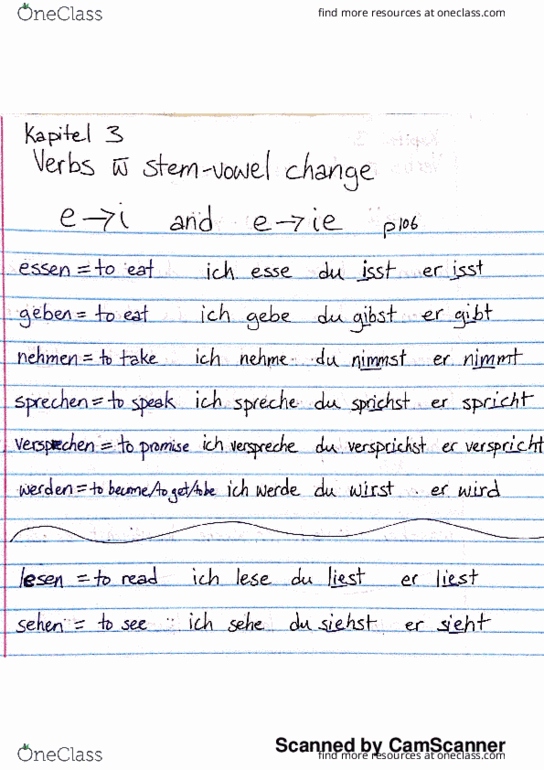 OneClass find more resources at oneclass.com
Kapitel 3
Verbs w̅ stem-vowel change
e→i and e→ie p106
essen = to eat ich esse du isst er isst
geben = to eat ich gebe du gibst er gibt
nehmen = to take ich nehme du nimmst er nimmt
sprechen = to speak ich spreche du sprichst er spricht
versprechen = to promise ich verspreche du versprichst er verspricht
werden = to become/to get/to be ich werde du wirst er wird
lesen = to read ich lese du liest er liest
sehen = to see ich sehe du siehst er sieht
Scanned by CamScanner
OneClass find more resources at oneclass.com